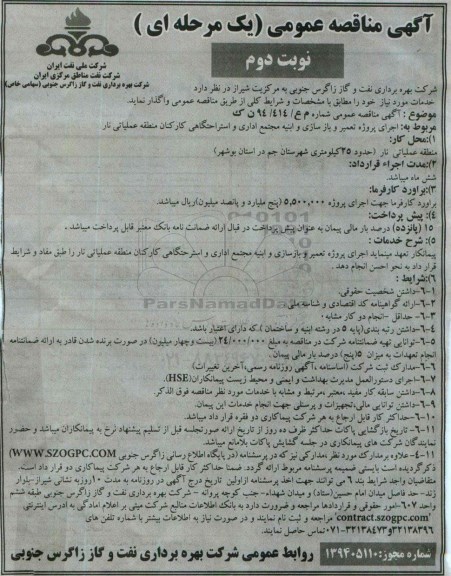 آگهی مناقصه عمومی (یک مرحله ای )
نوبت دوم
شرکت ملی نفت ایران
شرکت نفت مناطق مرکزی ایران
شرکت بهره برداری نفت و گاز زاگرس جنوبی (سهامی خاص)
شرکت بهره برداری نفت و گاز زاگرس جنوبی به مرکزیت شیراز در نظر دارد
خدمات مورد نیاز خود را مطابق با مشخصات و شرایط کلی از طریق مناقصه عمومی واگذار نماید.
موضوع : آگهی مناقصه عمومی شماره م ع/ ۹۴/۴۱۴ ن ک
مربوط به: اجرای پروژه تعمیر و باز سازی و ابنیه مجتمع اداری و استراحتگاهی کارکنان منطقه عملیاتی نار
۱):محل کار:
منطقه عملیاتی نار (حدود ۲۵کیلومتری شهرستان جم در استان بوشهر)
۲):مدت اجراء قرارداد:
شش ماه میباشد.
۳):براورد کارفرما:
براورد کارفرما جهت اجرای پروژه ۵,۵۰۰,۰۰۰ (پنج ملیارد و پانصد میلیون)ریال میباشد.
۴): پیش پرداخت:
۱۵ (پانزده) درصد بار مالی پیمان به عنوان پیش پرداخت در قبال ارائه ضمانت نامه بانک معتبر قابل پرداخت میباشد .
۵): شرح خدمات :
پیمانکار تعهد مینماید اجرای پروژه تعمیر و بازسازی و ابنیه مجتمع اداری و استرحتگاهی کارکنان منطقه عملیاتی نار را طبق مفاد و شرایط
قرار داد به نحو احسن انجام دهد .
۶):شرایط :
۱-۶-داشتن شخصیت حقوقی.
۲-۶-ارائه گواهینامه کد اقتصادی و شناسه ملی
۳-۶- حداقل -انجام دو کار مشابه .
۴-۶-داشتن رتبه بندی(پایه ۵ در رشته ابنیه و ساختمان ).که دارای اعتبار باشد.
۵-۶-توانایی تهیه ضمانتنامه شرکت در مناقصه به مبلغ ۲۴/۰۰۰/۰۰۰ (بیست وچهار میلیون) در صورت برنده شدن قادر به ارائه ضمانتنامه
انجام تعهدات به میزان ۵(پنج) درصد بار مالی پیمان.
۶-۶-مدارک ثبت شرکت (اساسنامه ،آگهی روزنامه رسمی،آخرین تغییرات)
۷-۶-اجرای دستورالعمل مدیریت بهداشت و ایمنی و محیط زیست پیمانکاران(HSE).
۸-۶-داشتن سابقه کار مفید ،معتبر ،مرتبط و مشابه با خدمات مورد نظر مناقصه فوق الذکر.
۹-۶-داشتن توانایی مالی،تجهیزات و پرسنلی جهت انجام خدمات این پیمان.
۱۰-۶-حداکثر کار قابل ارجاع به هر شرکت پیماکاری دو فقره قرار داد میباشد.
۱۱-۶-تاریخ بازگشایی پاکات حداکثر ظرف ده روز از تاریخ ارائه صورتجلسه قبل از تسلیم پیشنهاد نرخ به پیمانکاران میباشد و حضور
نمایندگان شرکت های پیمانکاری در جلسه گشایش پاکات بلامانع میباشد.
۱۱-۴-علاوه برمدارک مورد نظر ،مدارکی نیز که در پرسشنامه (در پایگاه اطلاع رسانی زاگرس جنوبی WWW.SZOGPC.COM)
ذکرگردیده است بایستی ضمیمه پرسشنامه مربوط ارائه گردد. ضمنا حداکثر کار قابل ارجاع به هر شرکت پیماکاری دو قرار داد است.
متقاضیان واجد شرایط بند ۶ می توانند جهت اخذ پرسشنامه ازاولین تاریخ درج آگهی در روزنامه به مدت ۱۰روزبه نشانی شیراز-بلوار
زند- حد فاصل میدان امام حسین(ستاد) و میدان شهداء- جنب کوچه پروانه - شرکت بهره برداری نفت و گاز زاگرس جنوبی طبقه ششم
واحد ۶۰۷-امور حقوقی و قراردادها مراجعه و ضرورت دارد به بانک اطلاعات منابع شرکت مبنی بر اعلام آمادگی به آدرس اینترنتی
'contract.szogpc.com' مراجعه و ثبت نام نمایند و در صورت نیاز به اطلاعات بیشتر با شماره تلفن های
۰۷۱-۳۲۱۳۸۴۷۳و۳۲۱۳۸۳۹۶ تماس حاصل نمایند.
شماره مجوز: ۱۳۹۴۰۵۱۱۰
روابط عمومی شرکت بهره برداری نفت و گاز زاگرس جنوبی
ParsNamadData